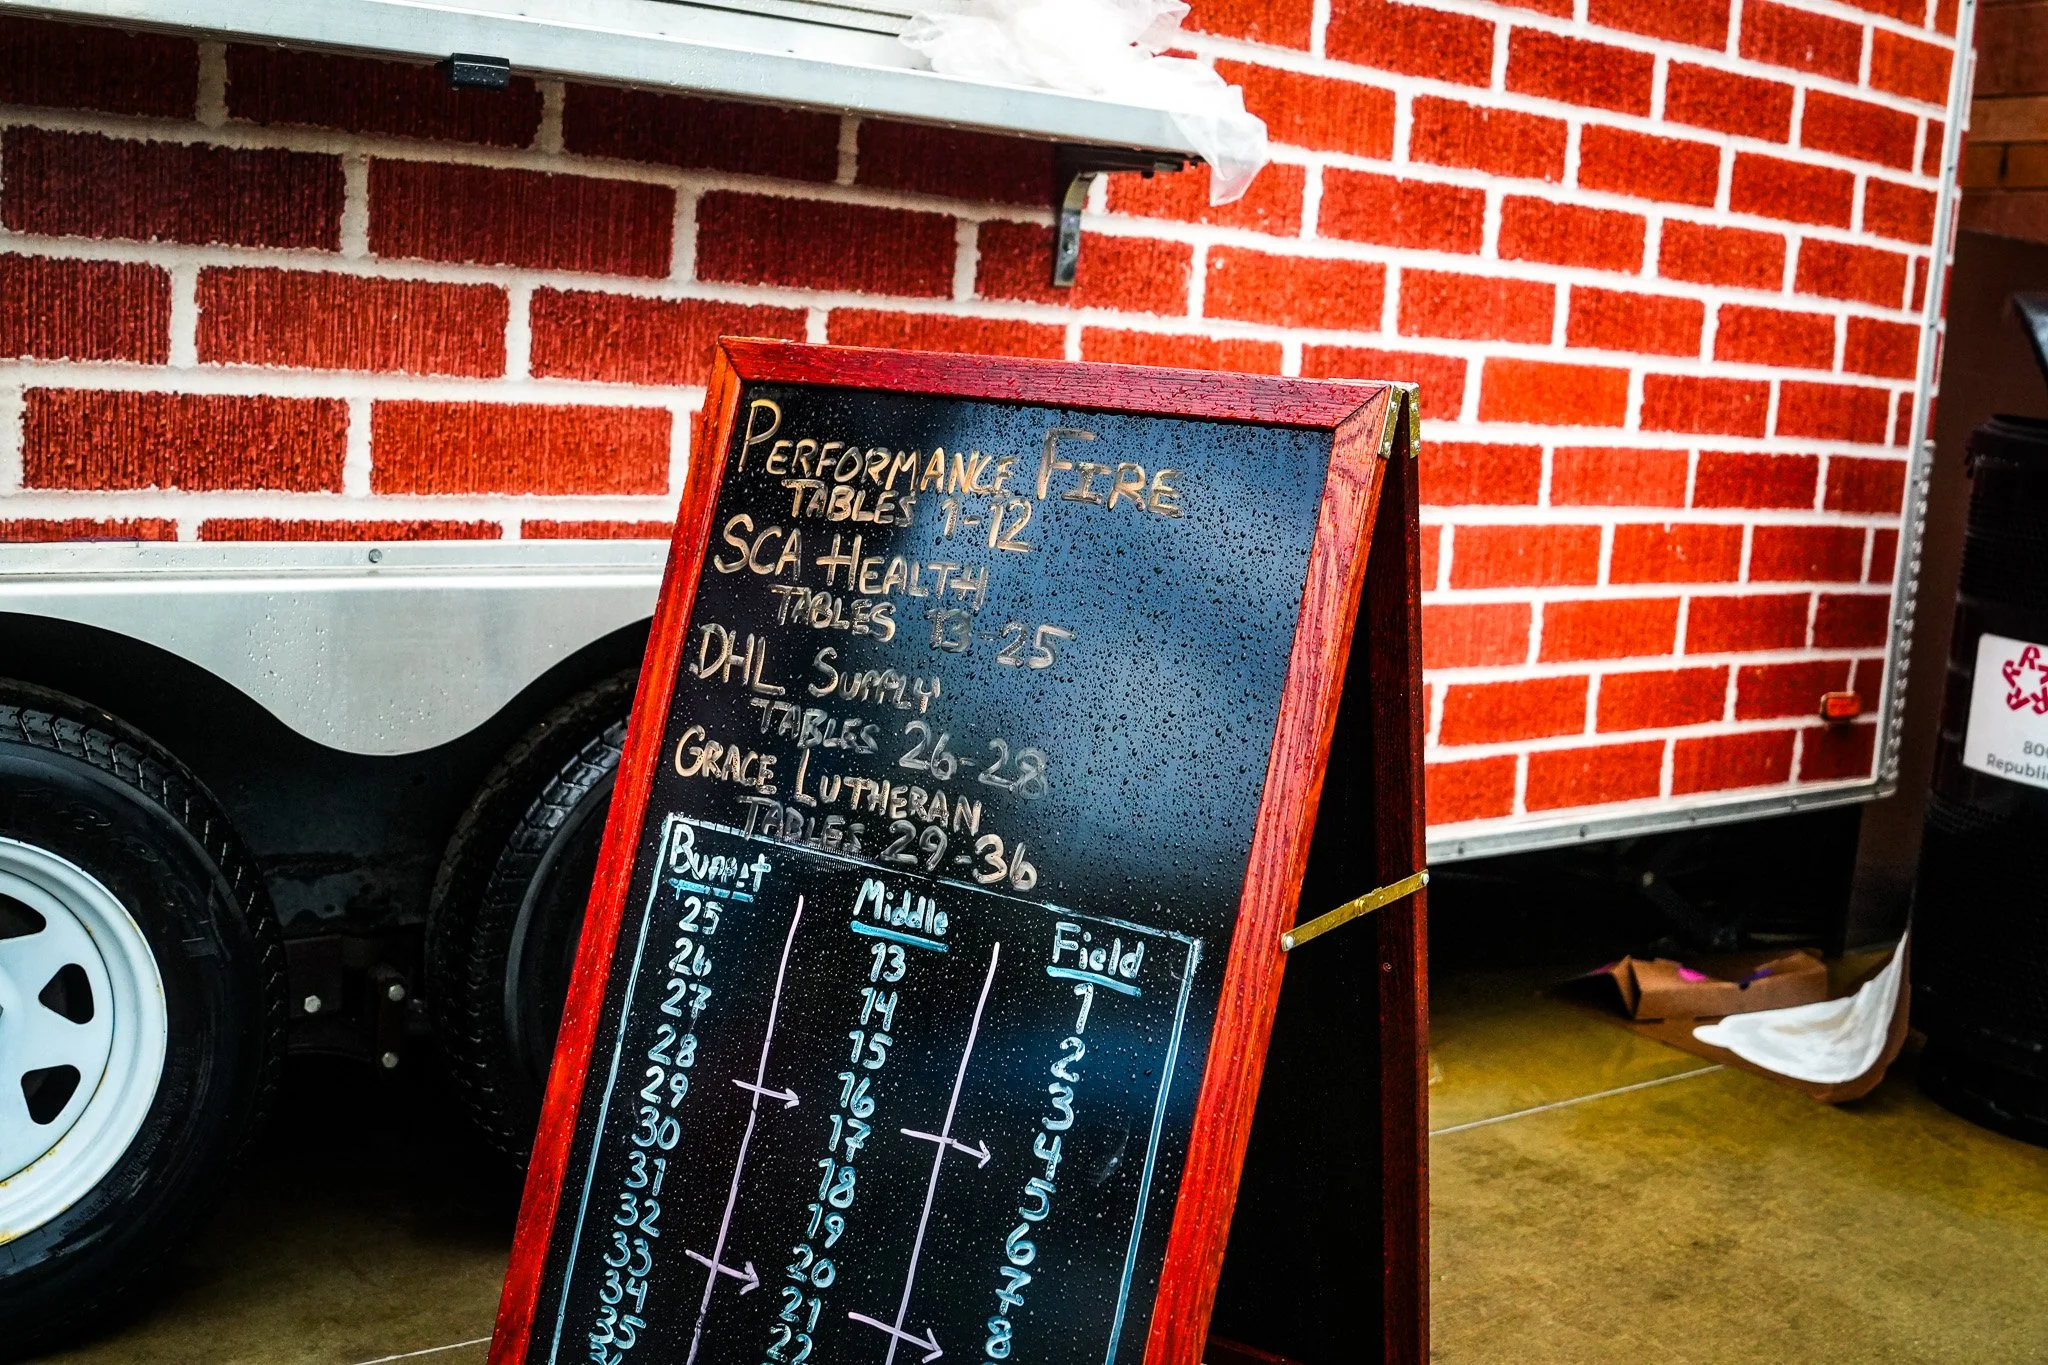 PERFORMANCE FIRE
TABLES 1-12
SCA HEALTH
TABLES 13-25
DHL SUPPLY
TABLES 26-28
GRACE LUTHERAN
TABLES 29-36
Buffet
25
26
27
28
29
30
31
32
33
34
35
Middle
13
14
15
16
17
18
19
20
21
22
Field
1
2
3
4
5
6
7
8
800
Republic